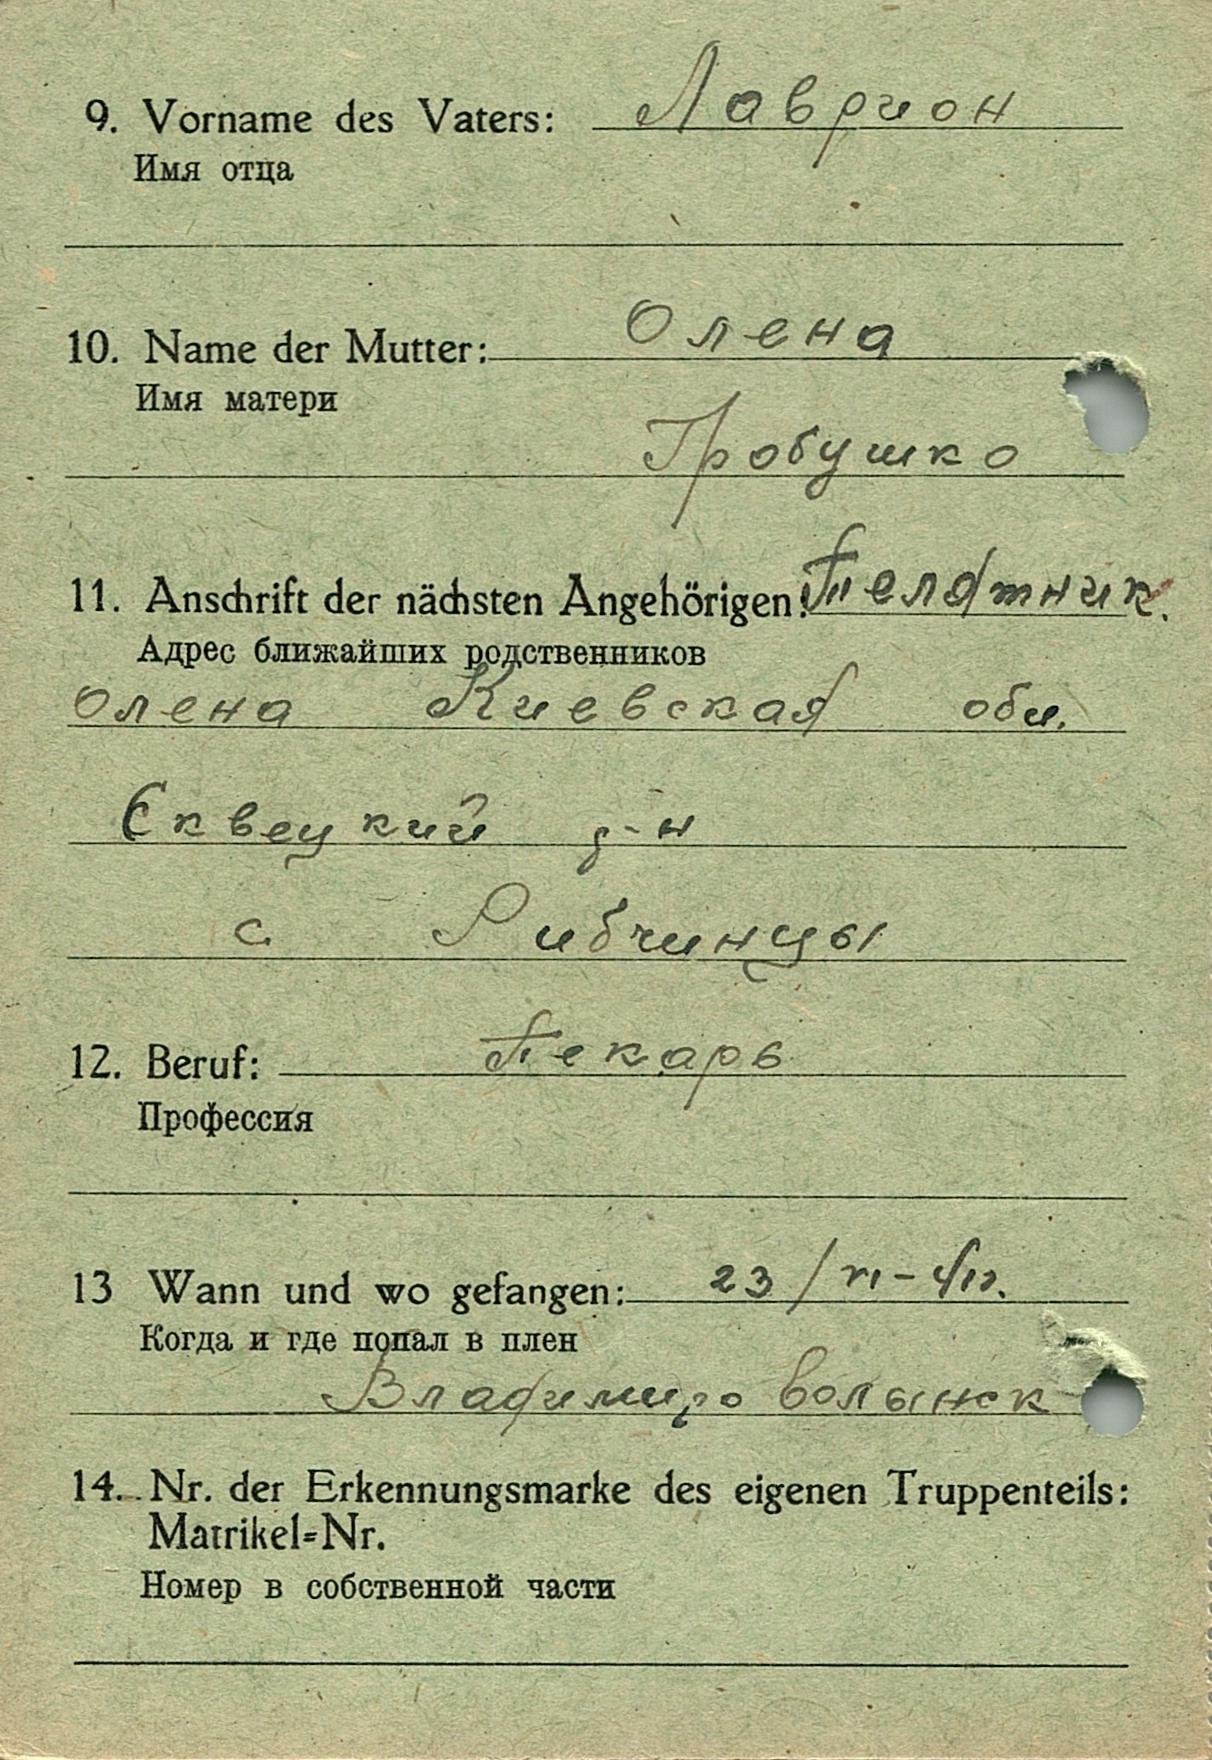 9. Vorname des Vaters: Лаврион
Имя отца
10. Name der Mutter: Олена
Имя матери
Гробушко
11. Anschrift der nächsten Angehörigen: Телятник.
Адрес ближайших родственников
Олена Киевская обл.
Сквецкий р-н
с. Рибчинцы
12. Beruf: Пекарь
Профессия
13 Wann und wo gefangen: 23/VI-41
Когда и где попал в плен
Владимиро Волынск
14. Nr. der Erkennungsmarke des eigenen Truppenteils:
Matrikel=Nr.
Номер в собственной части